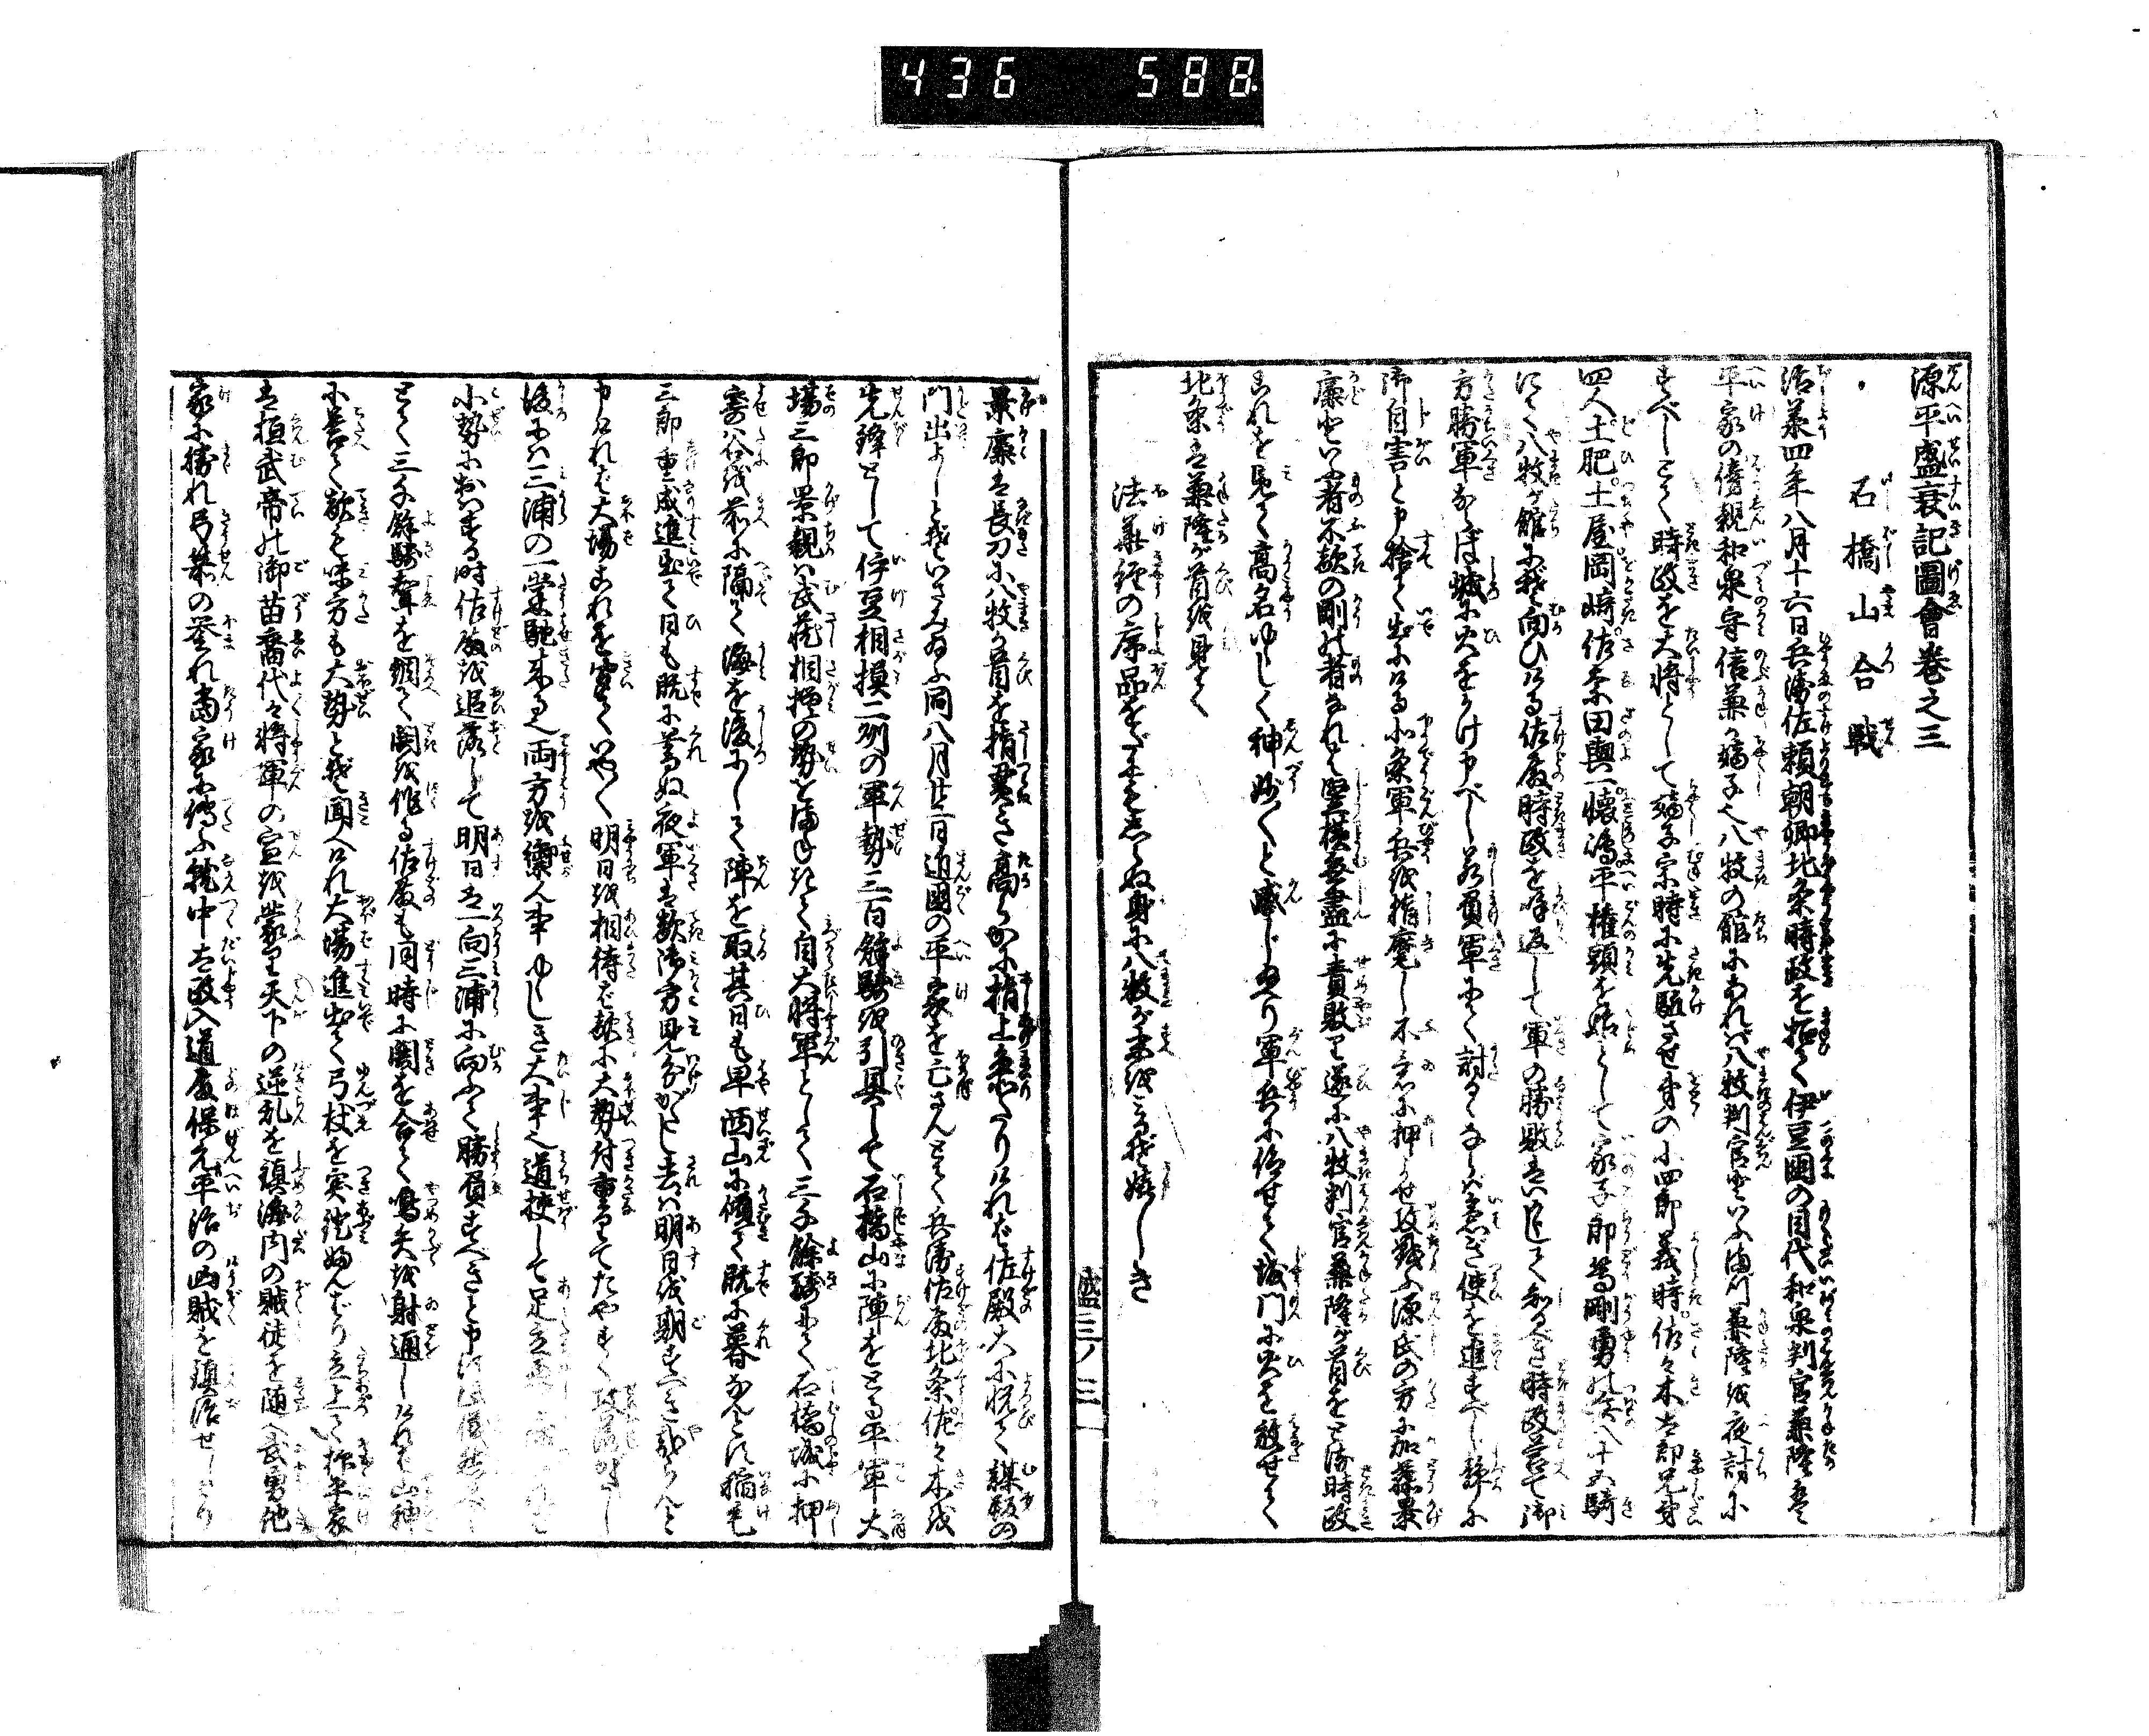 436 588
源平盛衰記圖會巻之三
石橋山合戦
治承四年八月十六日兵衛佐頼朝卿北条時政を招て伊豆国の目代和泉判官兼隆は
平家の傍親和泉守信兼が嫡子也八牧の館にあれバ八牧判官といふ兼隆を夜討に
すべしとて時政を大将として嫡子宗時に先駈させ弟の小四郎義時佐々木太郎兄弟
四人土肥土屋岡崎佐奈田與一懐嶋平権頭を始として家子郎等剛勇の兵八十五騎
にて八牧が館に向ひける佐殿時政を呼返して軍の勝敗はいかにして知べき時政答て御
方勝軍ならば城に火をかけ申べし若負軍にて討るゝならバ急ぎ使を進すべし静に
御自害と申捨て出にける北条軍兵を指麾し不意に押よせ攻戦ふ源氏の方に加藤景
廉といふ者不敵の剛の者なれば竪横無盡に責敗り遂に八牧判官兼隆が首をとる時政
これを見て高名ゆゝしく神妙〳〵と感じあへり軍兵に仰せて城門に火を放せて
北条は兼隆が首を見て
法華経の序品をだにもしらぬ身に八牧が末を見るぞ嬉しき
盛三ノ三 一
景廉は長刀に八牧が首を指貫き高らかに指上参りければ佐殿大に悦て謀叛の
門出よしと我いさみあふ同八月廿三日近国の平家を亡さんとて兵衛佐殿北条佐々木を
先鋒として伊豆相摸二州の軍勢三百餘騎を引具して石橋山に陣をとる平軍大
場三郎景親ハ武蔵相摸の勢を催して自大将軍として三千餘騎にて石橋城に押
寄ハ谷を前に隔て海を後にして陣を取其日も早西山に傾て既に暮なんとす稲毛
三郎重成進出て日も既に暮ぬ夜軍は敵御方見分がたし去ハ明日を期すべき歟らんと
申けれバ大場これを實てハ〳〵明日を相待ば敵に大勢付重りてたやすく攻落がたし
後にハ三浦の一党馳来る也両方を禦ん事ゆゝしき大事也道挟して足立
小勢におハする時佐殿を追落して明日は一向三浦に向ふて勝負すべきと申
とて三千餘騎聲を調へ閧を作る佐殿も同時に閧を合て鳴矢を射通しけれバ山神
に答て敵も味方も大勢とぞ聞へけれ大場進出て弓杖を突鐙ふんばり立上て抑平家
は桓武帝の御苗裔代々将軍の宣を蒙りて天下の逆乱を鎮海内の賊徒を随へ武勇他
家に勝れ弓箭の誉れ當家に傳ふ就中太政入道殿保元平治の凶賊を鎮治せしより